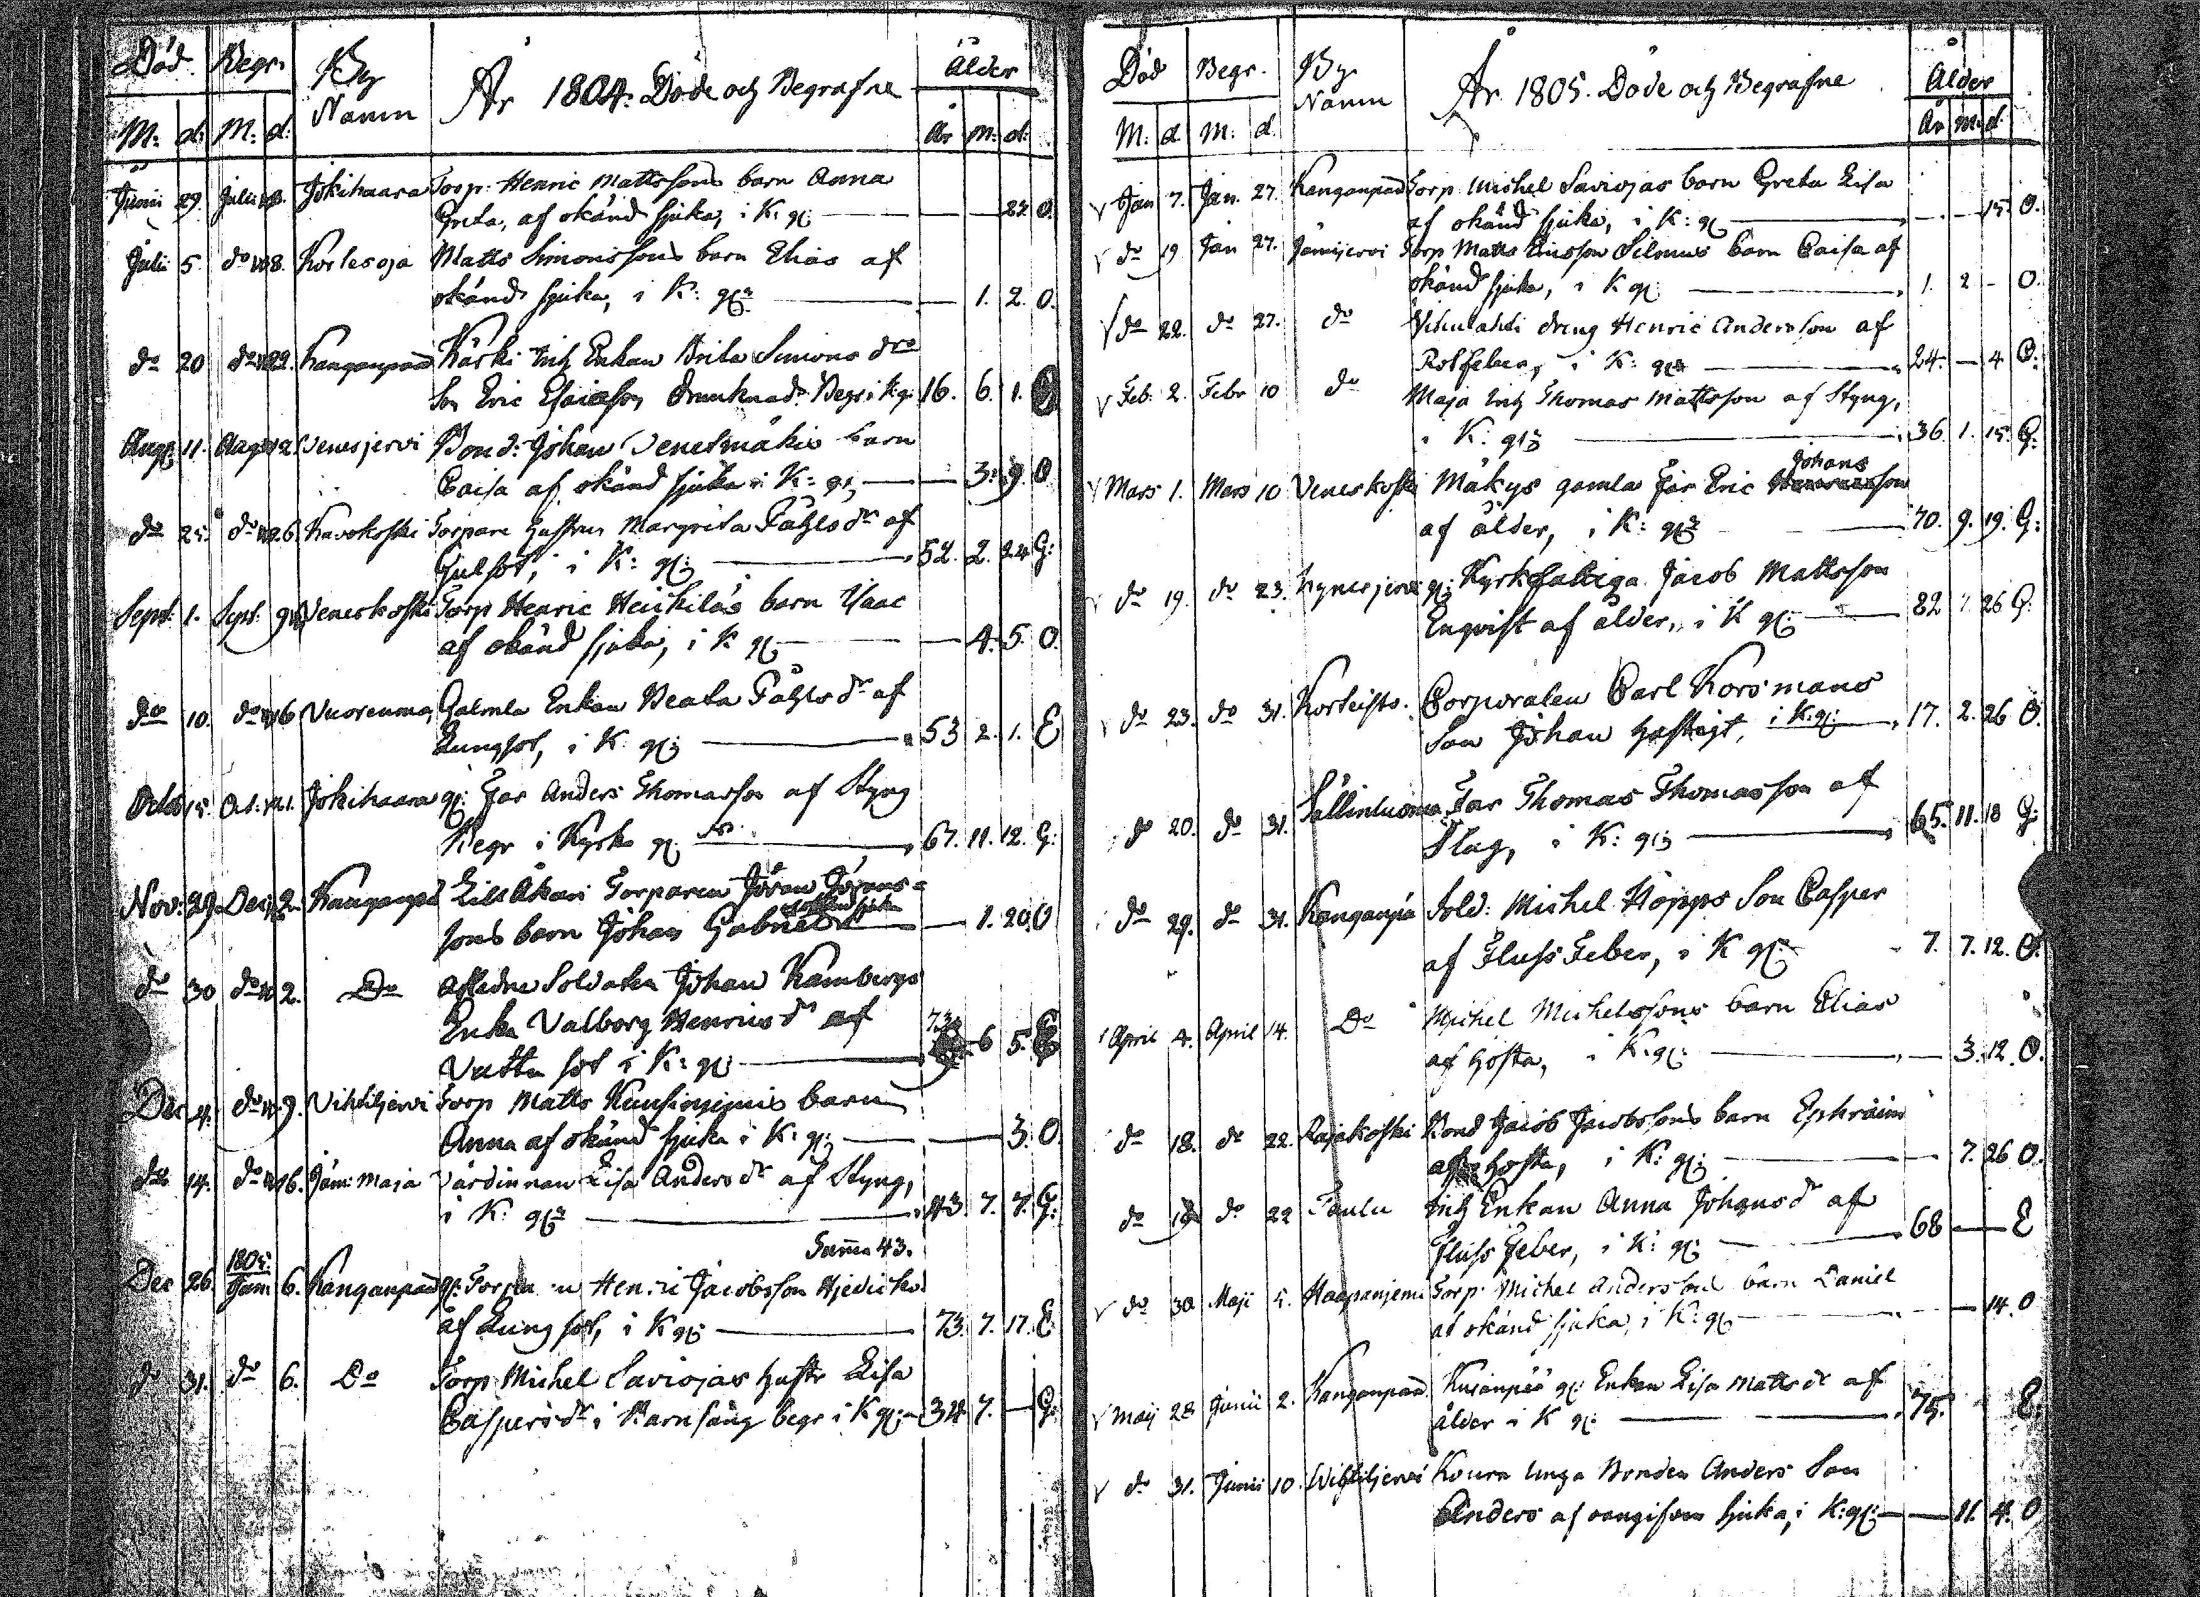 Död Begr. By Namn År 1804. Döde och Begrafne Ålder
M: d: M: d: År M: d:
Junii 29. Julii 8. Jokihaara Torp. Henric Mattssons barn Anna
Greta, af okänd sjuka, i K: g: 23. O.
Julii 5. do 8. Korlesoja Matts Simonssons barn Elias af
okänd sjuka, i K: g: — 1. 2. O.
do 20 do 22. Kanganpää Käski Inh Enkan Brita Simons dr
Son Eric Esaiesson drunknade. Begr. i K.g: 16. 6. 1. O
Aug: 11. Aug 12. Venesjervi Bond: Johan Venesmäkis barn
Caisa af okänd sjuka i K: g: — 3. 9. O
do 25. do 26. Kavokoski Torpare hustrun Margreta Påhls dr af
Gulsot, i K: g: 52. 2. 24 G:
Sept. 1. Sept. 9 Veneskoski Torp Henric Heickiläs barn Isaac
af okänd sjuka, i K g: — 4. 5. O.
do 10. do 16 Vuorenmaa Gamla Enkan Beata Påhls dr af
Lungsot, i K: g: 53 2. 1. E
Octob 15. Oct. 21. Jokihaara g: Far Anders Thomasson af Styng
Begr i Kyrko g: 67. 11. 12. G:
Nov: 29. Dec. 2. Kanganpää Lill Åkari Torparen Jöran Jörans-
sons barn Johan Gabriel af okänd sjuka — 1. 20. O
do 30 do 2. Do Afledne Soldaten Johan Kambergs
Enka Valborg Henrics dr af
Vattu sot i K: g: 73. 6 5. E
Dec 4. do 9. Vihteljervi Torp Matts barn
Anna af okänd sjuka i K: g: — 3. O.
do 14. do 16. Jäm: Maja Värdinnan Lisa Anders dr af Styng,
i K: g: 43. 7. 7. G:
Summa 43.
Dec 26. 1805: Jan 6. Kanganpää g: Torparen Henric Jacobsson
af Lungsot, i K g: 73. 7. 17. E
do 31. do 6. Do Torp Michel Saviojas hustr Lisa
Caspers dr i Barnsäng begr i K g: 34. 7. — G:
Död Begr. By Namn År 1805. Döde och Begrafne Ålder
M: d. M: d. År M: d.
Jan 7. Jan. 27. Kanganpää Torp. Michel Saviojas barn Greta Lisa
af okänd sjuka, i K: g: — 15. O.
do 19 Jan 27. Jämijervi Torp Matts Ericsson barn Caisa af
okänd sjuka, i K g: 1. 2 - O.
do 22. do 27. do Vihulahti dreng Henric Andersson af
Rötfeber, i K: g: 24. — 4 O.
Feb. 2. Febr 10 do Maja Inh Thomas Mattsson af Styng,
i K: g: 36. 1. 15. G:
Mars 1. Mars 10 Veneskoski Mäkys gamla Far Eric Johansson
af ålder, i K: g: 70. 9. 19. G:
do 19. do 23. Kynesjervi g: Kyrkfattiga Jacob Mattsson
Enqvist af ålder, i K g: 82 7. 26 G.
do 23. do 31. Corporalen Carl Korsmans
Son Johan hastigt, i K:g: 17. 2. 26 O.
do 20. do 31. Sällinluoma Far Thomas Thomasson af
Slag, i K: g: 65. 11. 18 G:
do 29. do 31. Kanganpä Sold: Michel Hopps Son Casper
af FlussFeber, i K g: 7. 7. 12. O.
April 4. April 14. Do Michel Michelssons barn Elias
af hosta, i K.g: — 3. 12. O.
do 18. do 22. Rajakoski Bond Jacob Jacobssons barn Ephraim
af hosta, i K: g: — 7. 26 O.
do 19 do 22 Taulu Inh Enkan Anna Johans dr af
Fluss Feber, i K: g: 68 — E
do 30 Maji 5. Haapanjemi Torp: Michel Anderssons barn Daniel
af okänd sjuka, i K: g: — 14. O
Maij 28 Junii 2. Kanganpää g: Enkan Lisa Matts dr af
ålder i K g: 75. E.
do 31. Junii 10. Wihteljervi Koura unga Bonden Anders Son
Anders af sjuka, i K:g: — 11. 4. O